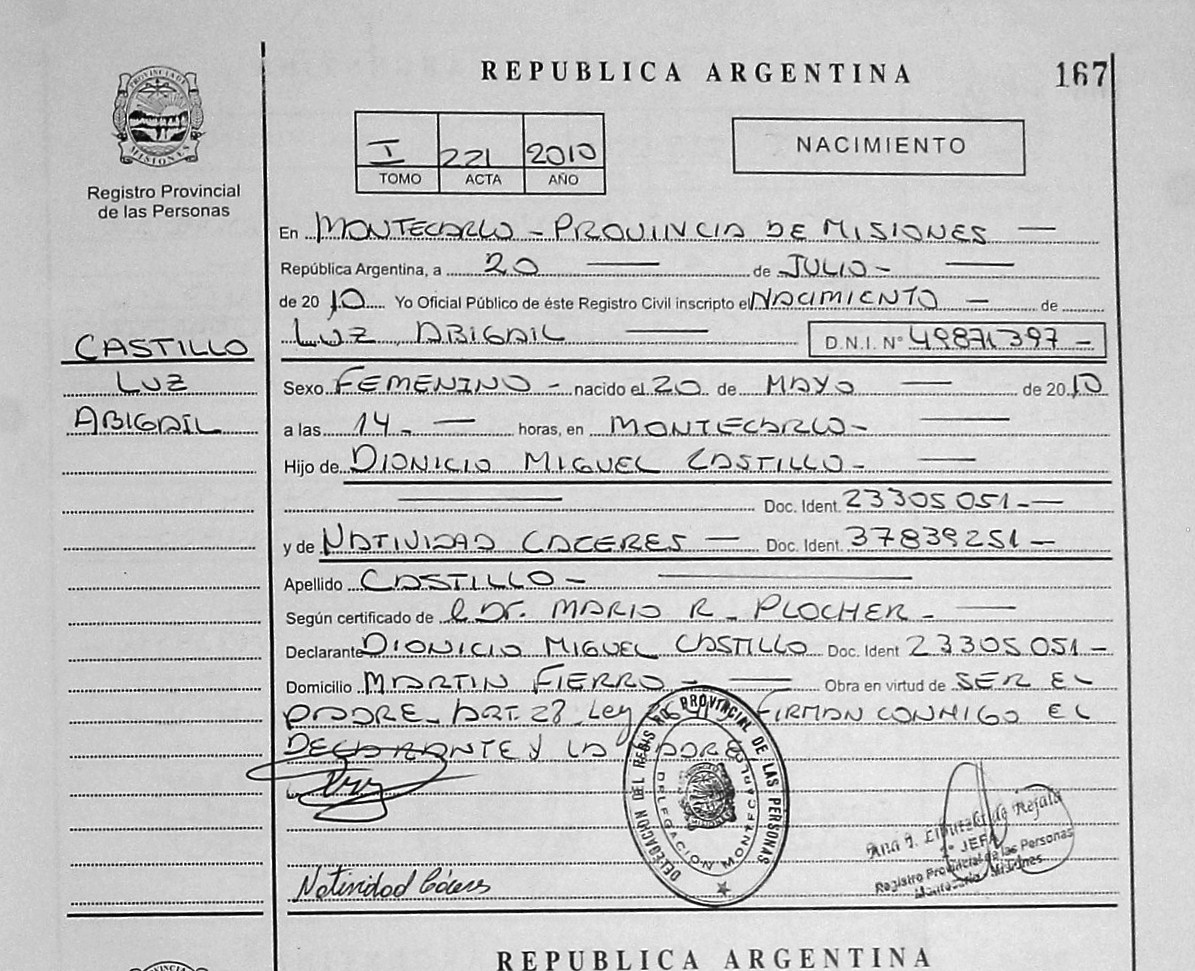 REPUBLICA ARGENTINA
167
PROVINCIA DE MISIONES
Registro Provincial
de las Personas
I 221 2010
TOMO ACTA AÑO
NACIMIENTO
En MONTECARLO - PROVINCIA DE MISIONES —
República Argentina, a 20 — de JULIO - —
de 2010 Yo Oficial Público de éste Registro Civil inscripto el NACIMIENTO — de
LUZ ABIGAIL — D.N.I. N° 49871397 -
CASTILLO
LUZ
ABIGAIL
Sexo FEMENINO - nacido el 20 de MAYO — de 2010
a las 14 - — horas, en MONTECARLO - —
Hijo de DIONICIO MIGUEL CASTILLO - —
— Doc. Ident. 23305051 - —
y de NATIVIDAD CACERES — Doc. Ident. 37839251 -
Apellido CASTILLO - —
Según certificado de el Dr. MARIO R. PLOCHER - —
Declarante DIONICIO MIGUEL CASTILLO Doc. Ident 23305051 -
Domicilio MARTIN FIERRO - — Obra en virtud de SER EL
PADRE - ART. 28 Ley FIRMAN CONMIGO EL
DECLARANTE Y LA MADRE
DELEGACION DEL REGISTRO PROVINCIAL DE LAS PERSONAS
DELEGACION MONTECARLO
Natividad Cáceres
Ana de Rejala
JEFA
Registro Provincial de las Personas
Montecarlo Misiones
REPUBLICA ARGENTINA